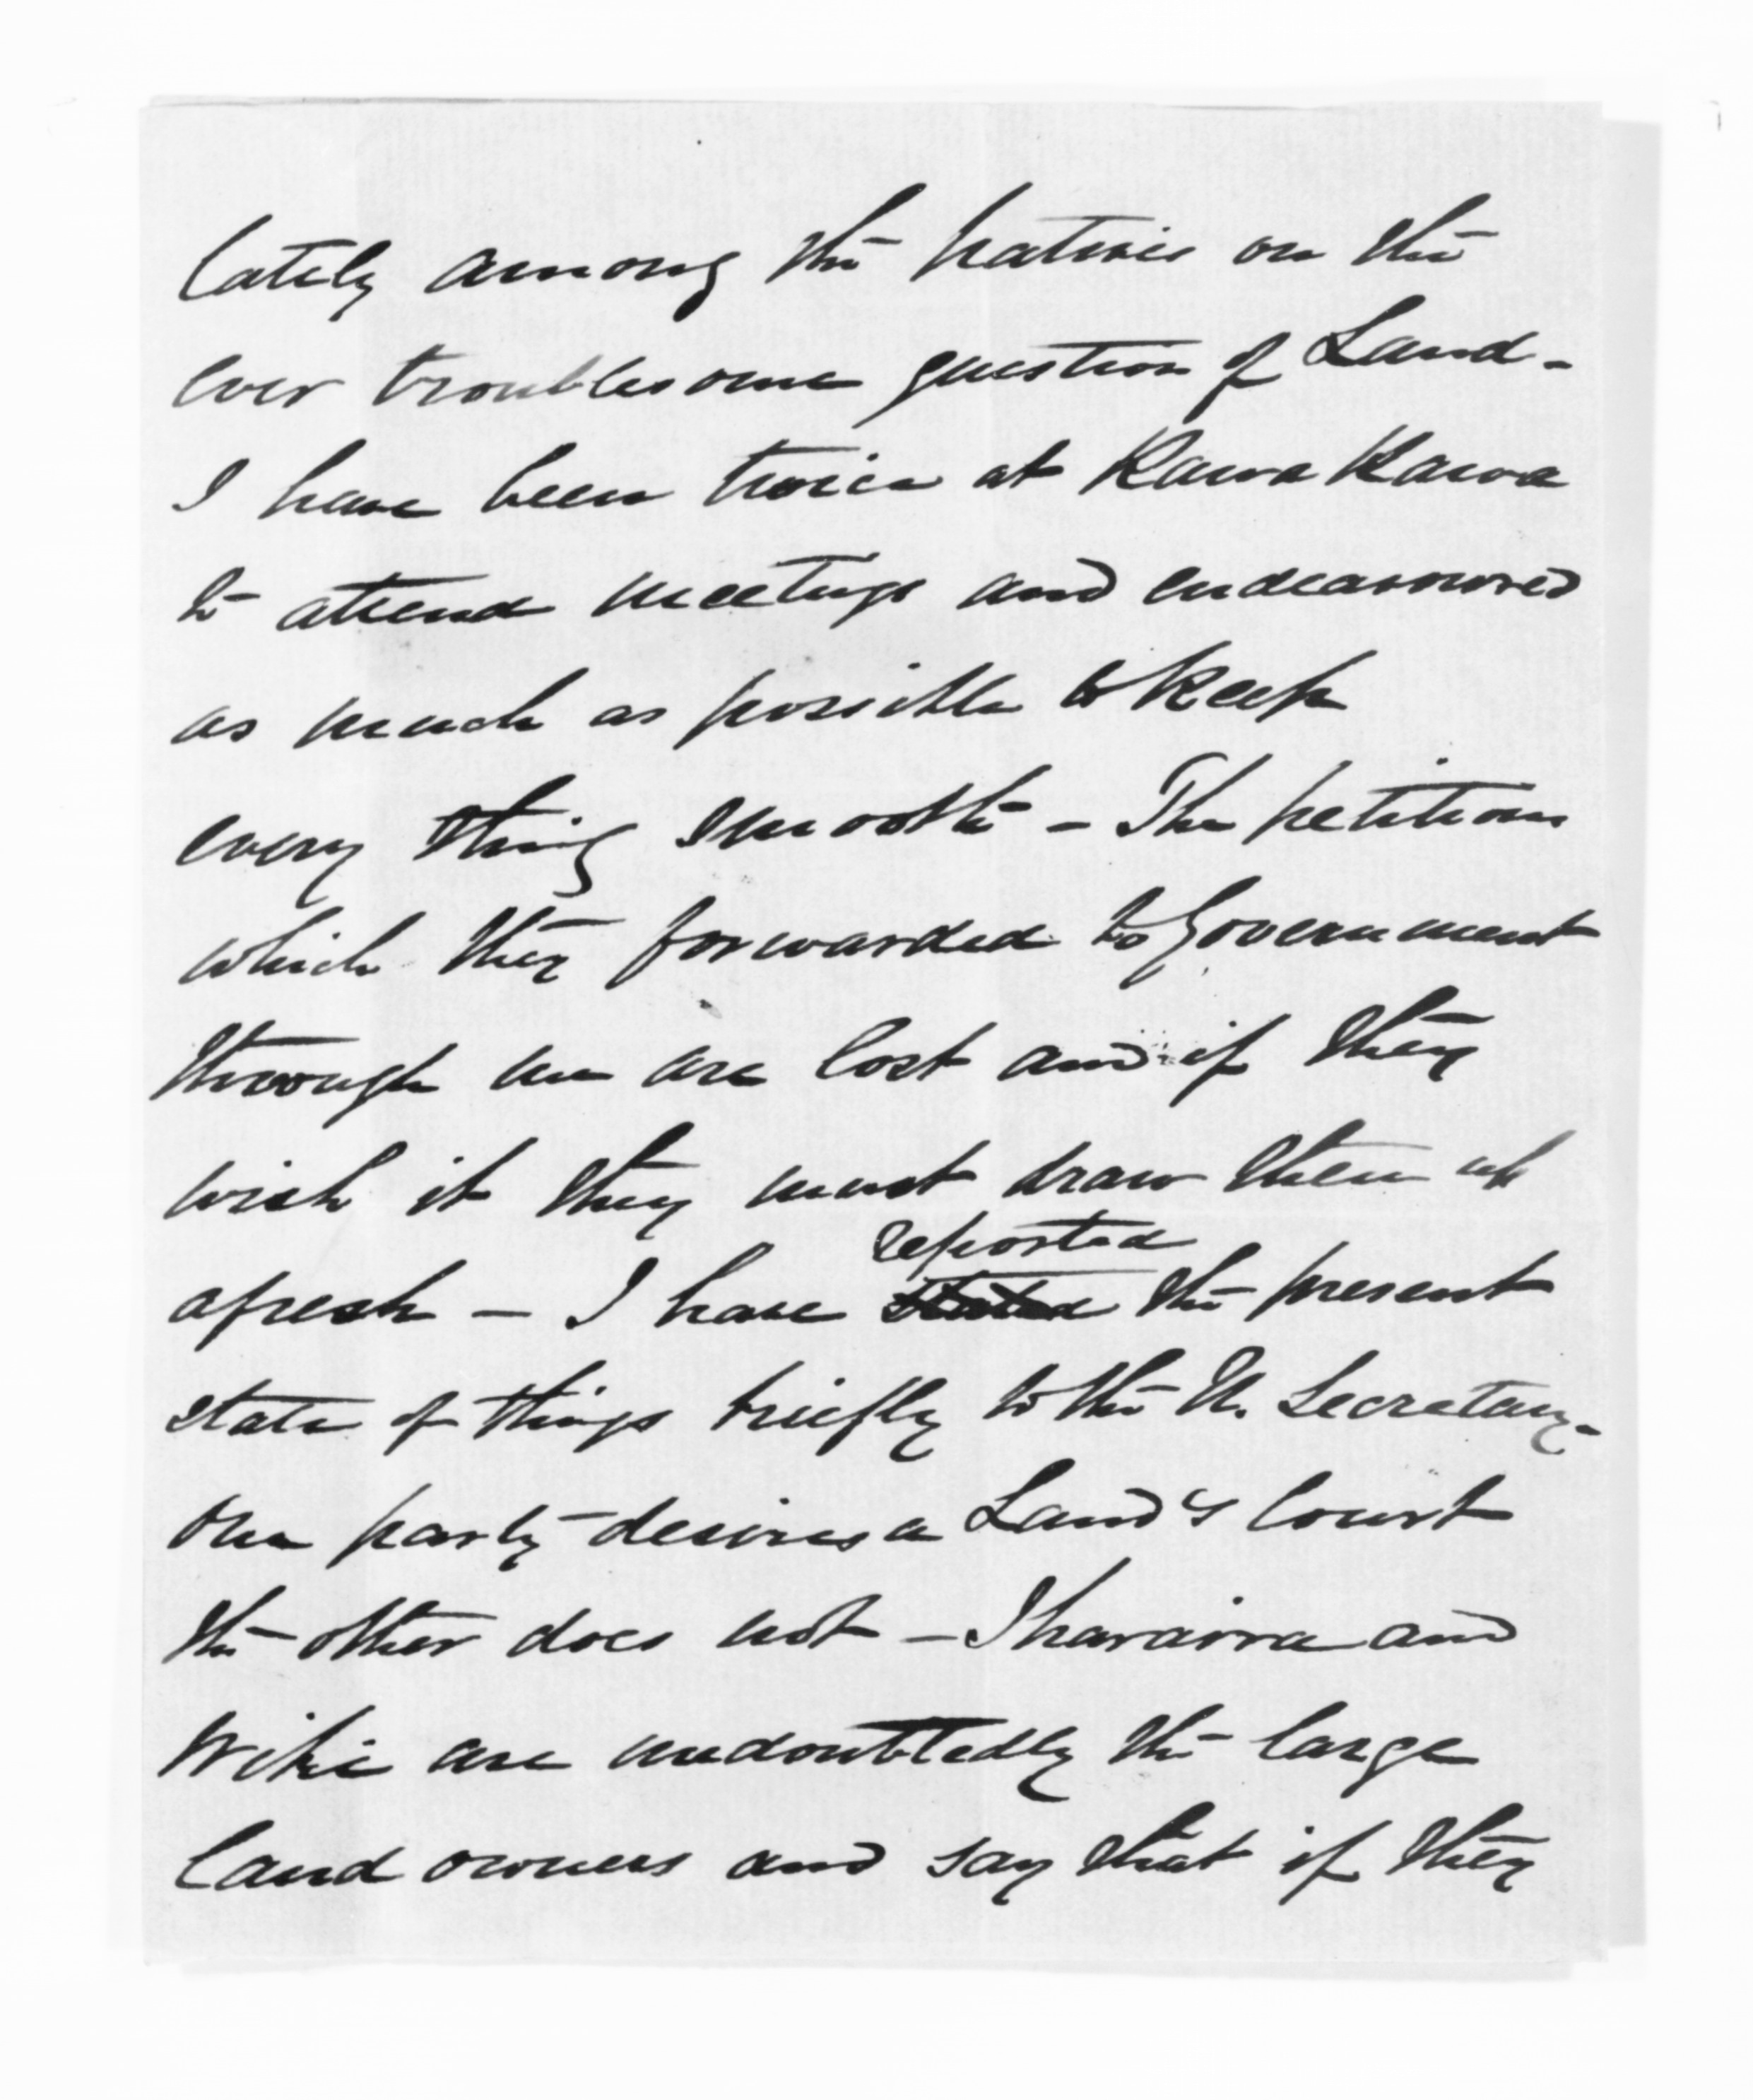 lately among the natives on the
ever troublesome question of Land -
I have been twice at Kawa Kawa
to attend meetings and endeavoured
as much as possible to keep
every thing smooth - The petitions
which they forwarded to Government
through me are lost and if they
wish it they must draw them up
afresh - I have reported stated the present
state of things briefly to the N. Secretary -
One party desires a Land's Court
the other does not - Iharaira and
Wiki are undoubtedly the large
land owners and say that if they